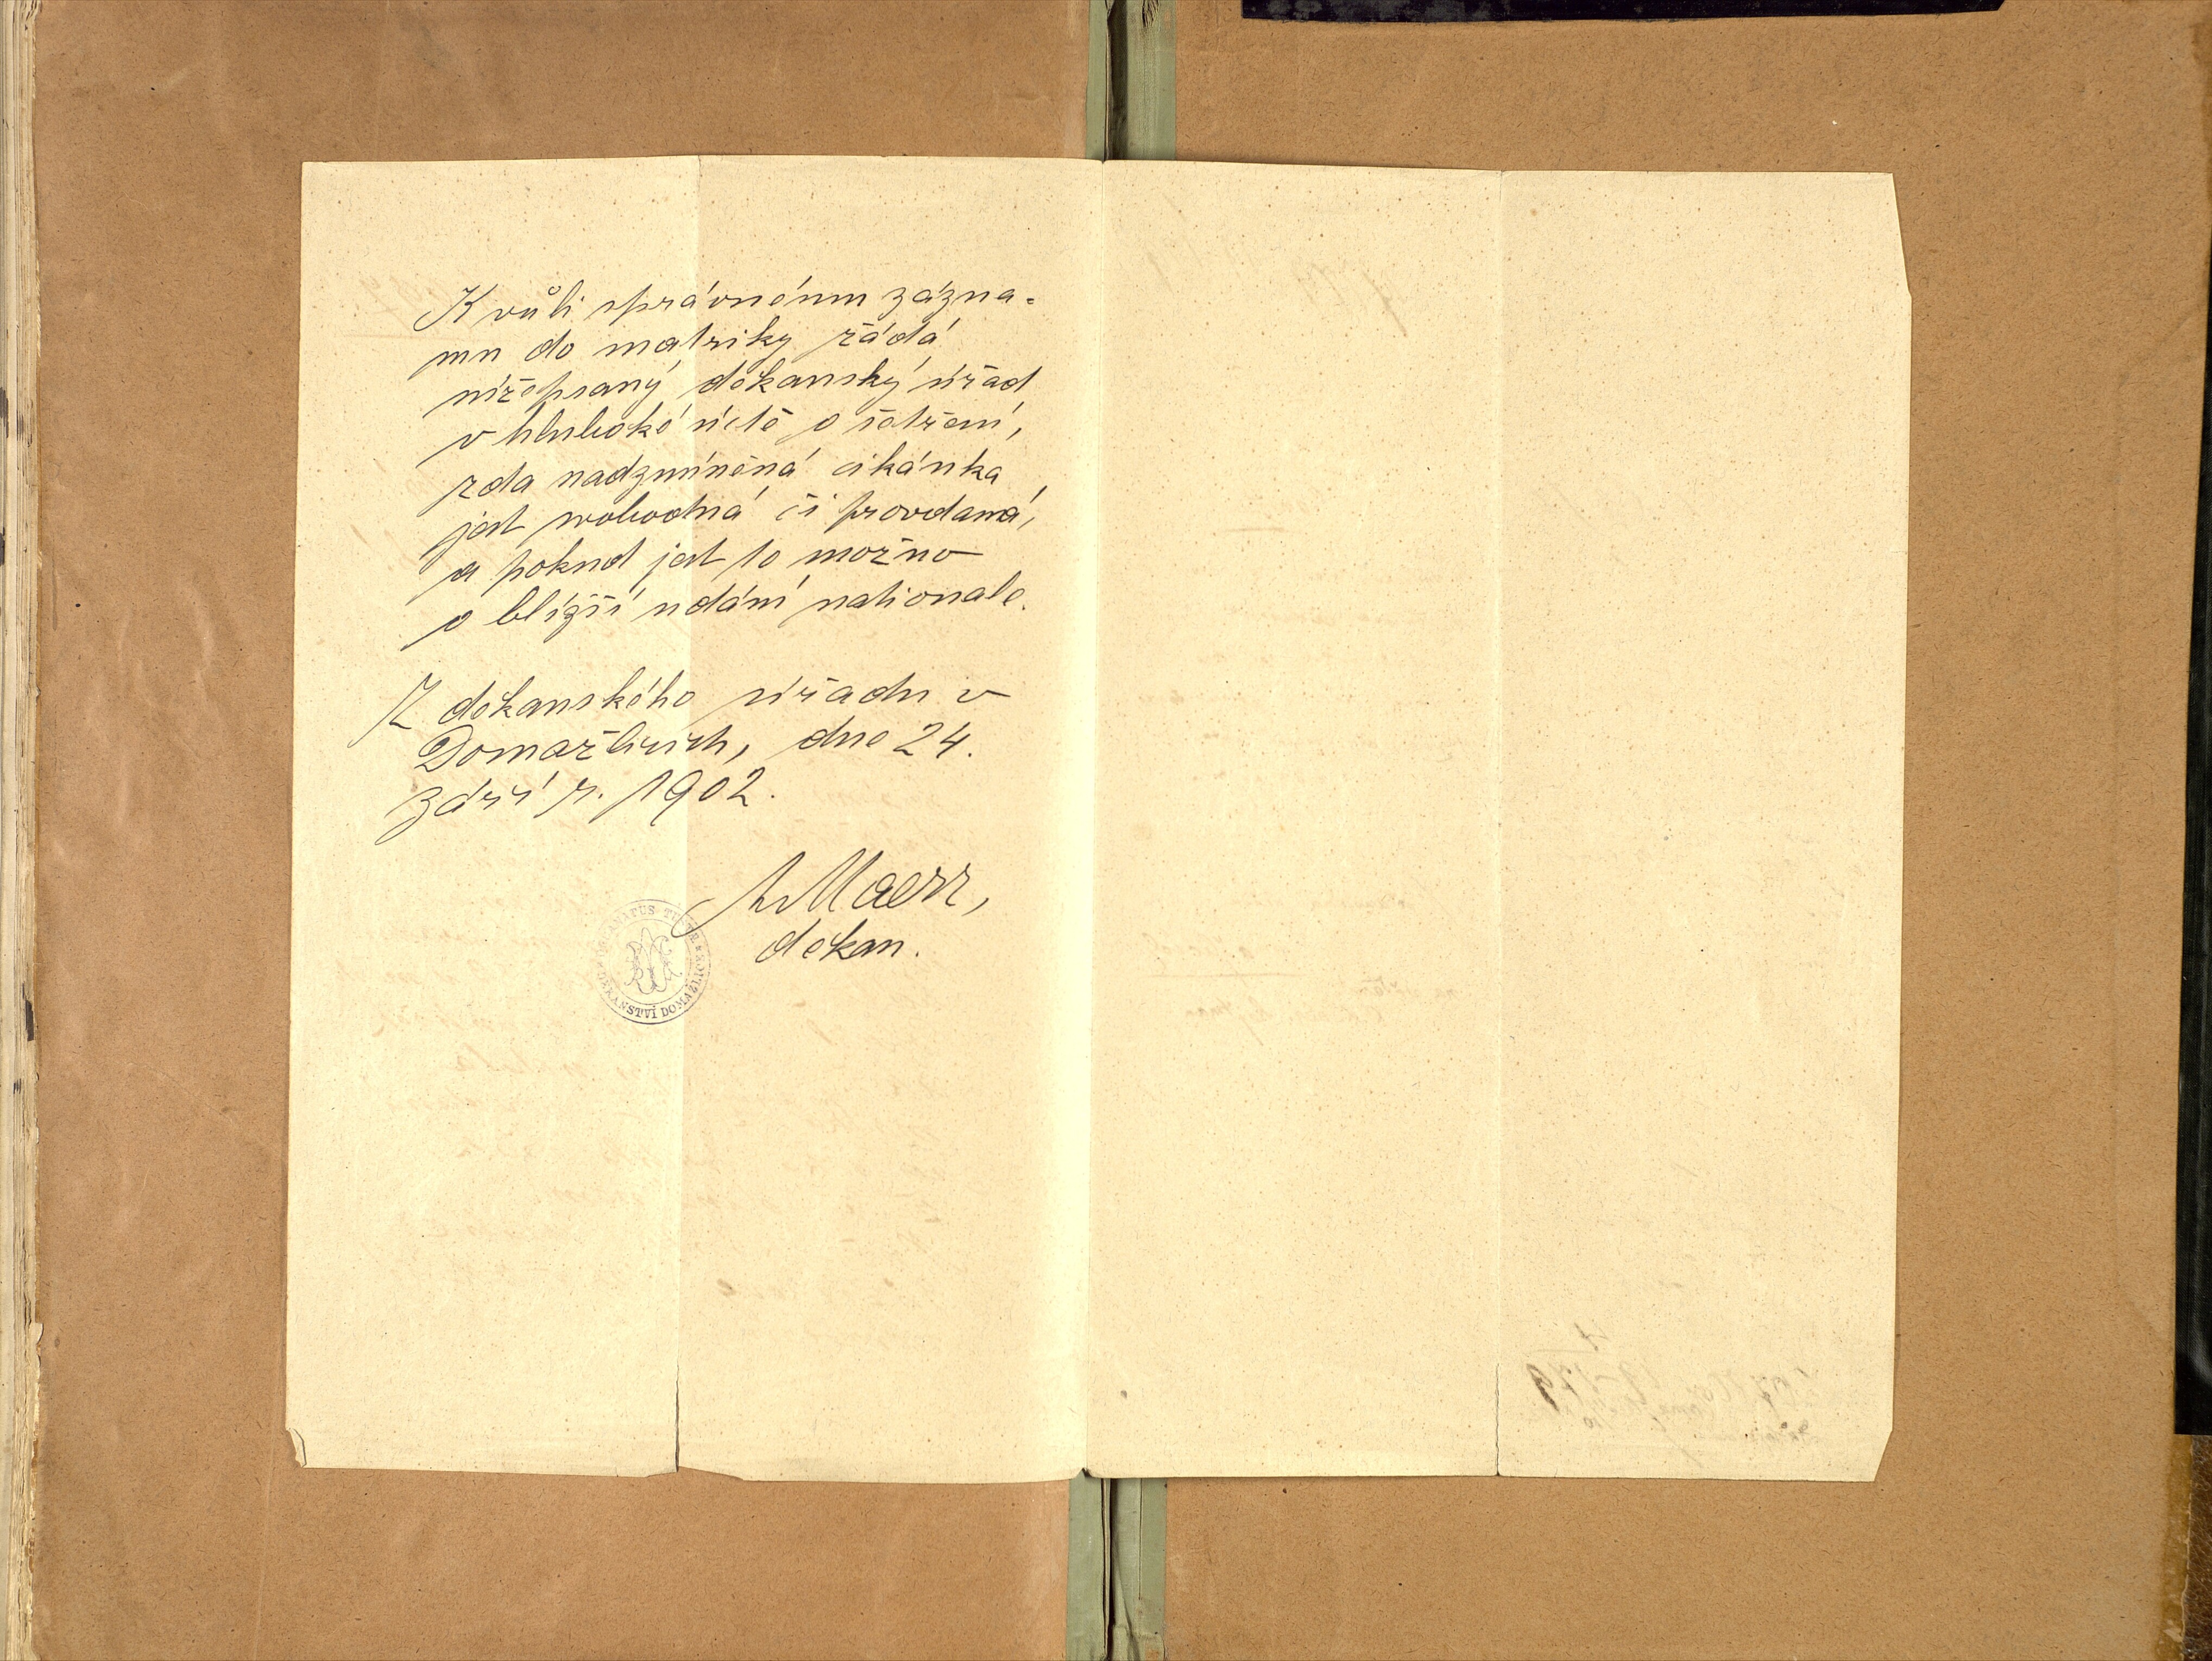 K vůli správnému zázna-
mu do matriky žádá
nížepsaný děkanský úřad
v hluboké úctě o šetření,
zda nadzmíněná cikánka
jest svobodná či provdaná,
a pokud jest to možno
o bližší udání nationale.
Z děkanského úřadu v
Domažlicích, dne 24.
září r. 1902.
Maerz,
děkan.
DĚKANSTVÍ DOMAŽLICKÉ